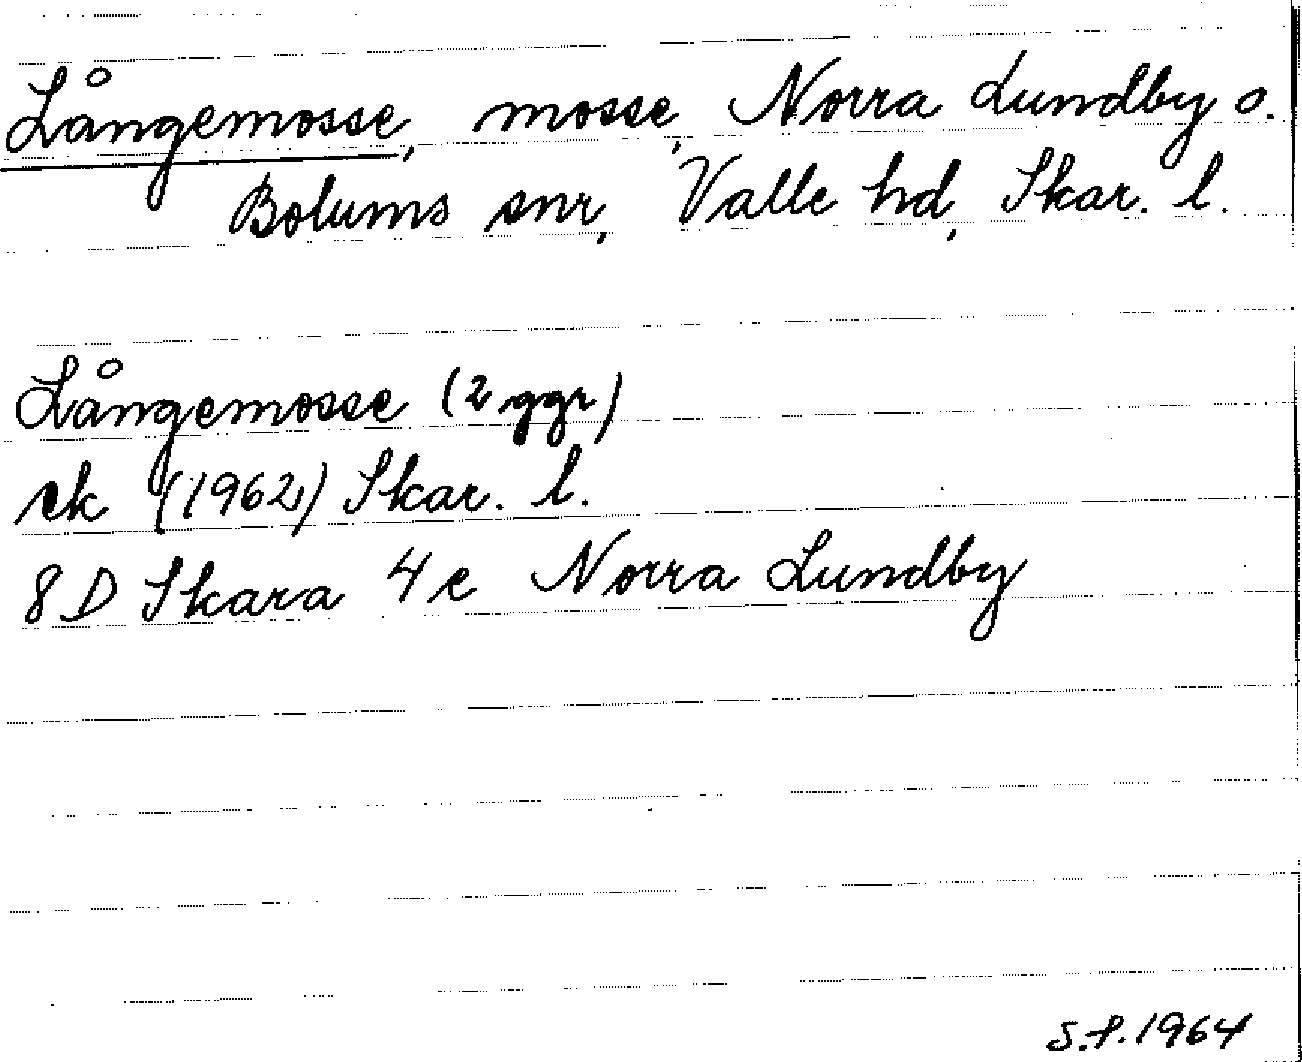 Långemosse, mosse, Norra Lundby o.
Bolums snr, Valle hd, Skar. l.
Långemosse (2 ggr)
ek (1962) Skar. l.
8 D Skara 4 e Norra Lundby
S.F. 1964